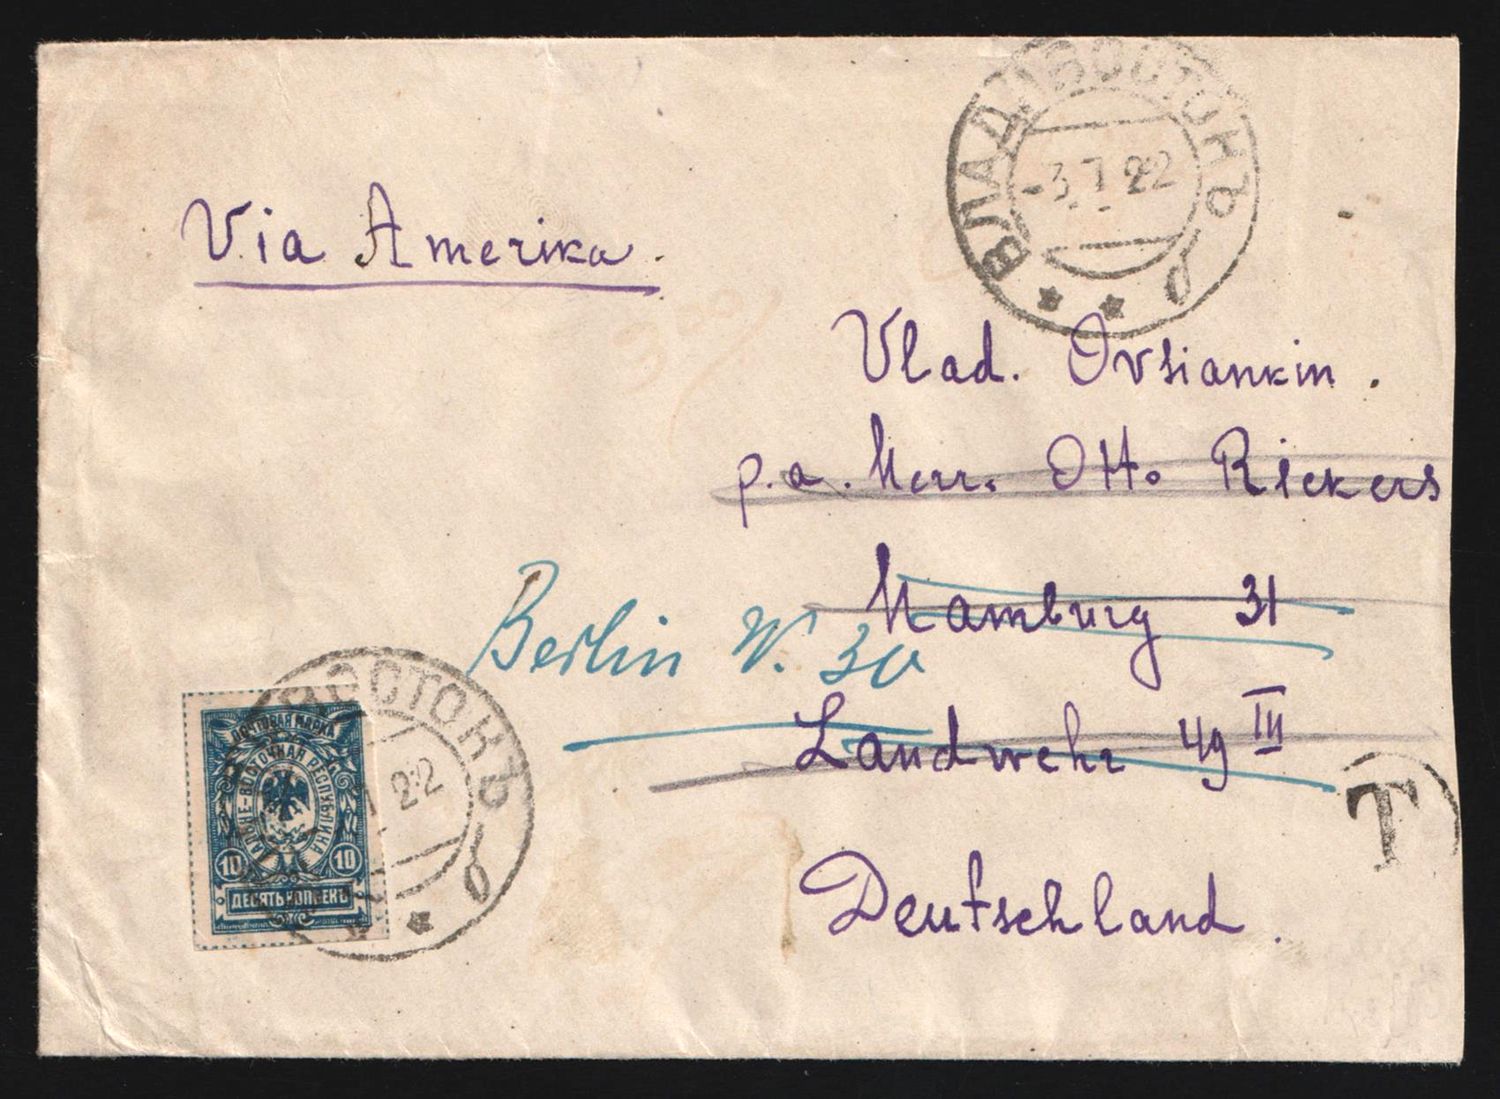 ВЛАДИВОСТОКЪ
-3.7.22
б
Via Amerika.
Vlad. Ovsiankin.
p.a. Herr. Otto Rickers
Hamburg 31
Berlin W. 30
Landwehr 49 III
Deutschland.
T
ВОСТОКЪ
22
б
ПОЧТОВАЯ МАРКА
ДАЛЬНЕ-ВОСТОЧНАЯ РЕСПУБЛИКА
10 10
ДЕСЯТЬ КОПѢЕКЪ